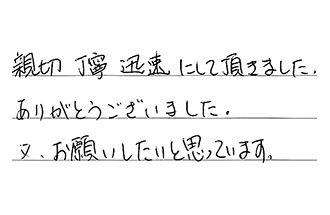 親切 丁寧 迅速 にして頂きました.
ありがとうございました.
又、お願いしたいと思っています。